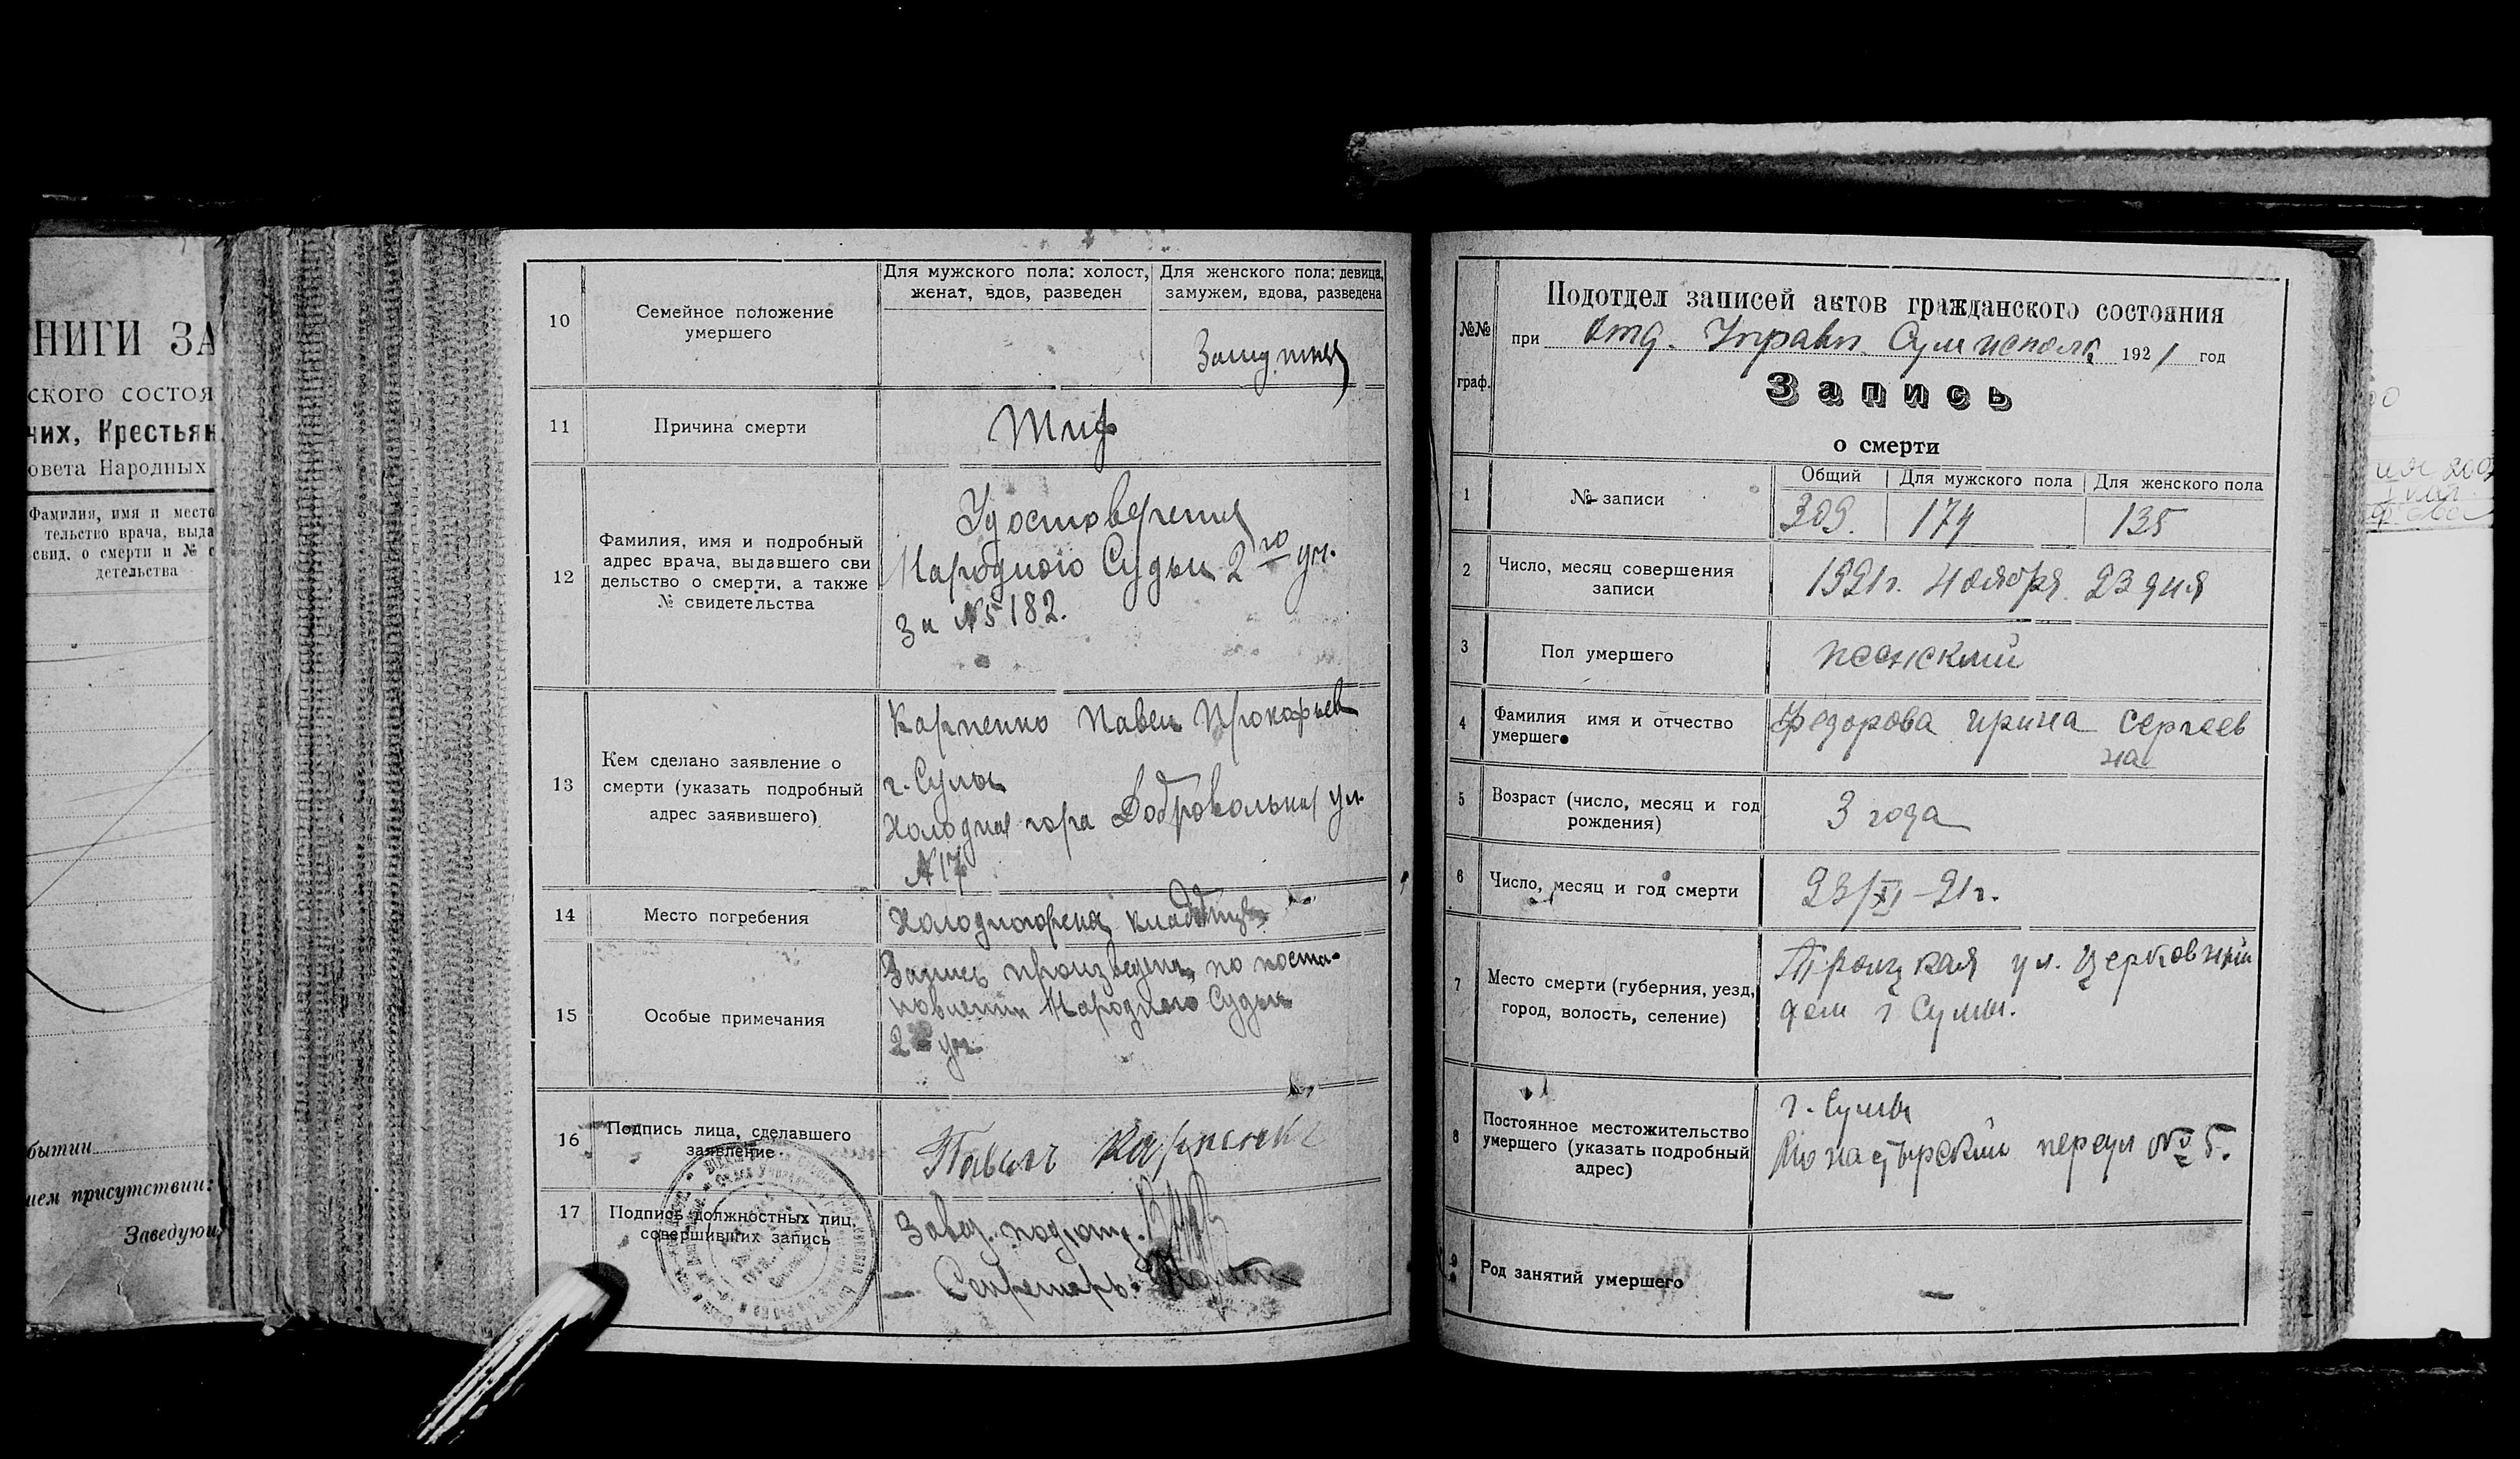 НИГИ ЗА
ского состоя
чих, Крестьян
овета Народных
Фамилия, имя и место
тельство врача, выда
свид. о смерти и № с
детельства
бытии
ием присутствии:
Заведую
10
Семейное положение
умершего
Для мужского пола: холост,
женат, вдов, разведен
Для женского пола: девица,
замужем, вдова, разведена
11
Причина смерти
Тиф
12
Фамилия, имя и подробный
адрес врача, выдавшего сви
дельство о смерти, а также
№ свидетельства
Удостоверения
Народного Судьи 2го уч.
За № 182.
13
Кем сделано заявление о
смерти (указать подробный
адрес заявившего)
Карпенко Павел Прокофьев
г. Сумы
Холодная гора Добровольная ул.
№ 17
14
Место погребения
Холодногорска кладбище
15
Особые примечания
Запись произведена по поста-
новлении Народного Судьи
2 уч.
16
Подпись лица, сделавшего
заявление
Павел Карпенко
17
Подпись должностных лиц,
совершивших запись
Завед. подотд.
Секретарь:
№№
граф.
Подотдел записей актов гражданского состояния
при Отд. Управл. Сумисполк. 1921 год
Запись
о смерти
1
№ записи
Общий
Для мужского пола
Для женского пола
309.
174
135
2
Число, месяц совершения
записи
1921г. Ноября 23 дня
3
Пол умершего
женский
4
Фамилия имя и отчество
умершего
Федорова Ирина Сергеев
на
5
Возраст (число, месяц и год
рождения)
3 года
6
Число, месяц и год смерти
23/XI-21г.
7
Место смерти (губерния, уезд,
город, волость, селение)
Троицкая ул. Церковный
дом г Сумы.
8
Постоянное местожительство
умершего (указать подробный
адрес)
г. Сумы
Монастырский переул № 5.
9
Род занятий умершего
—